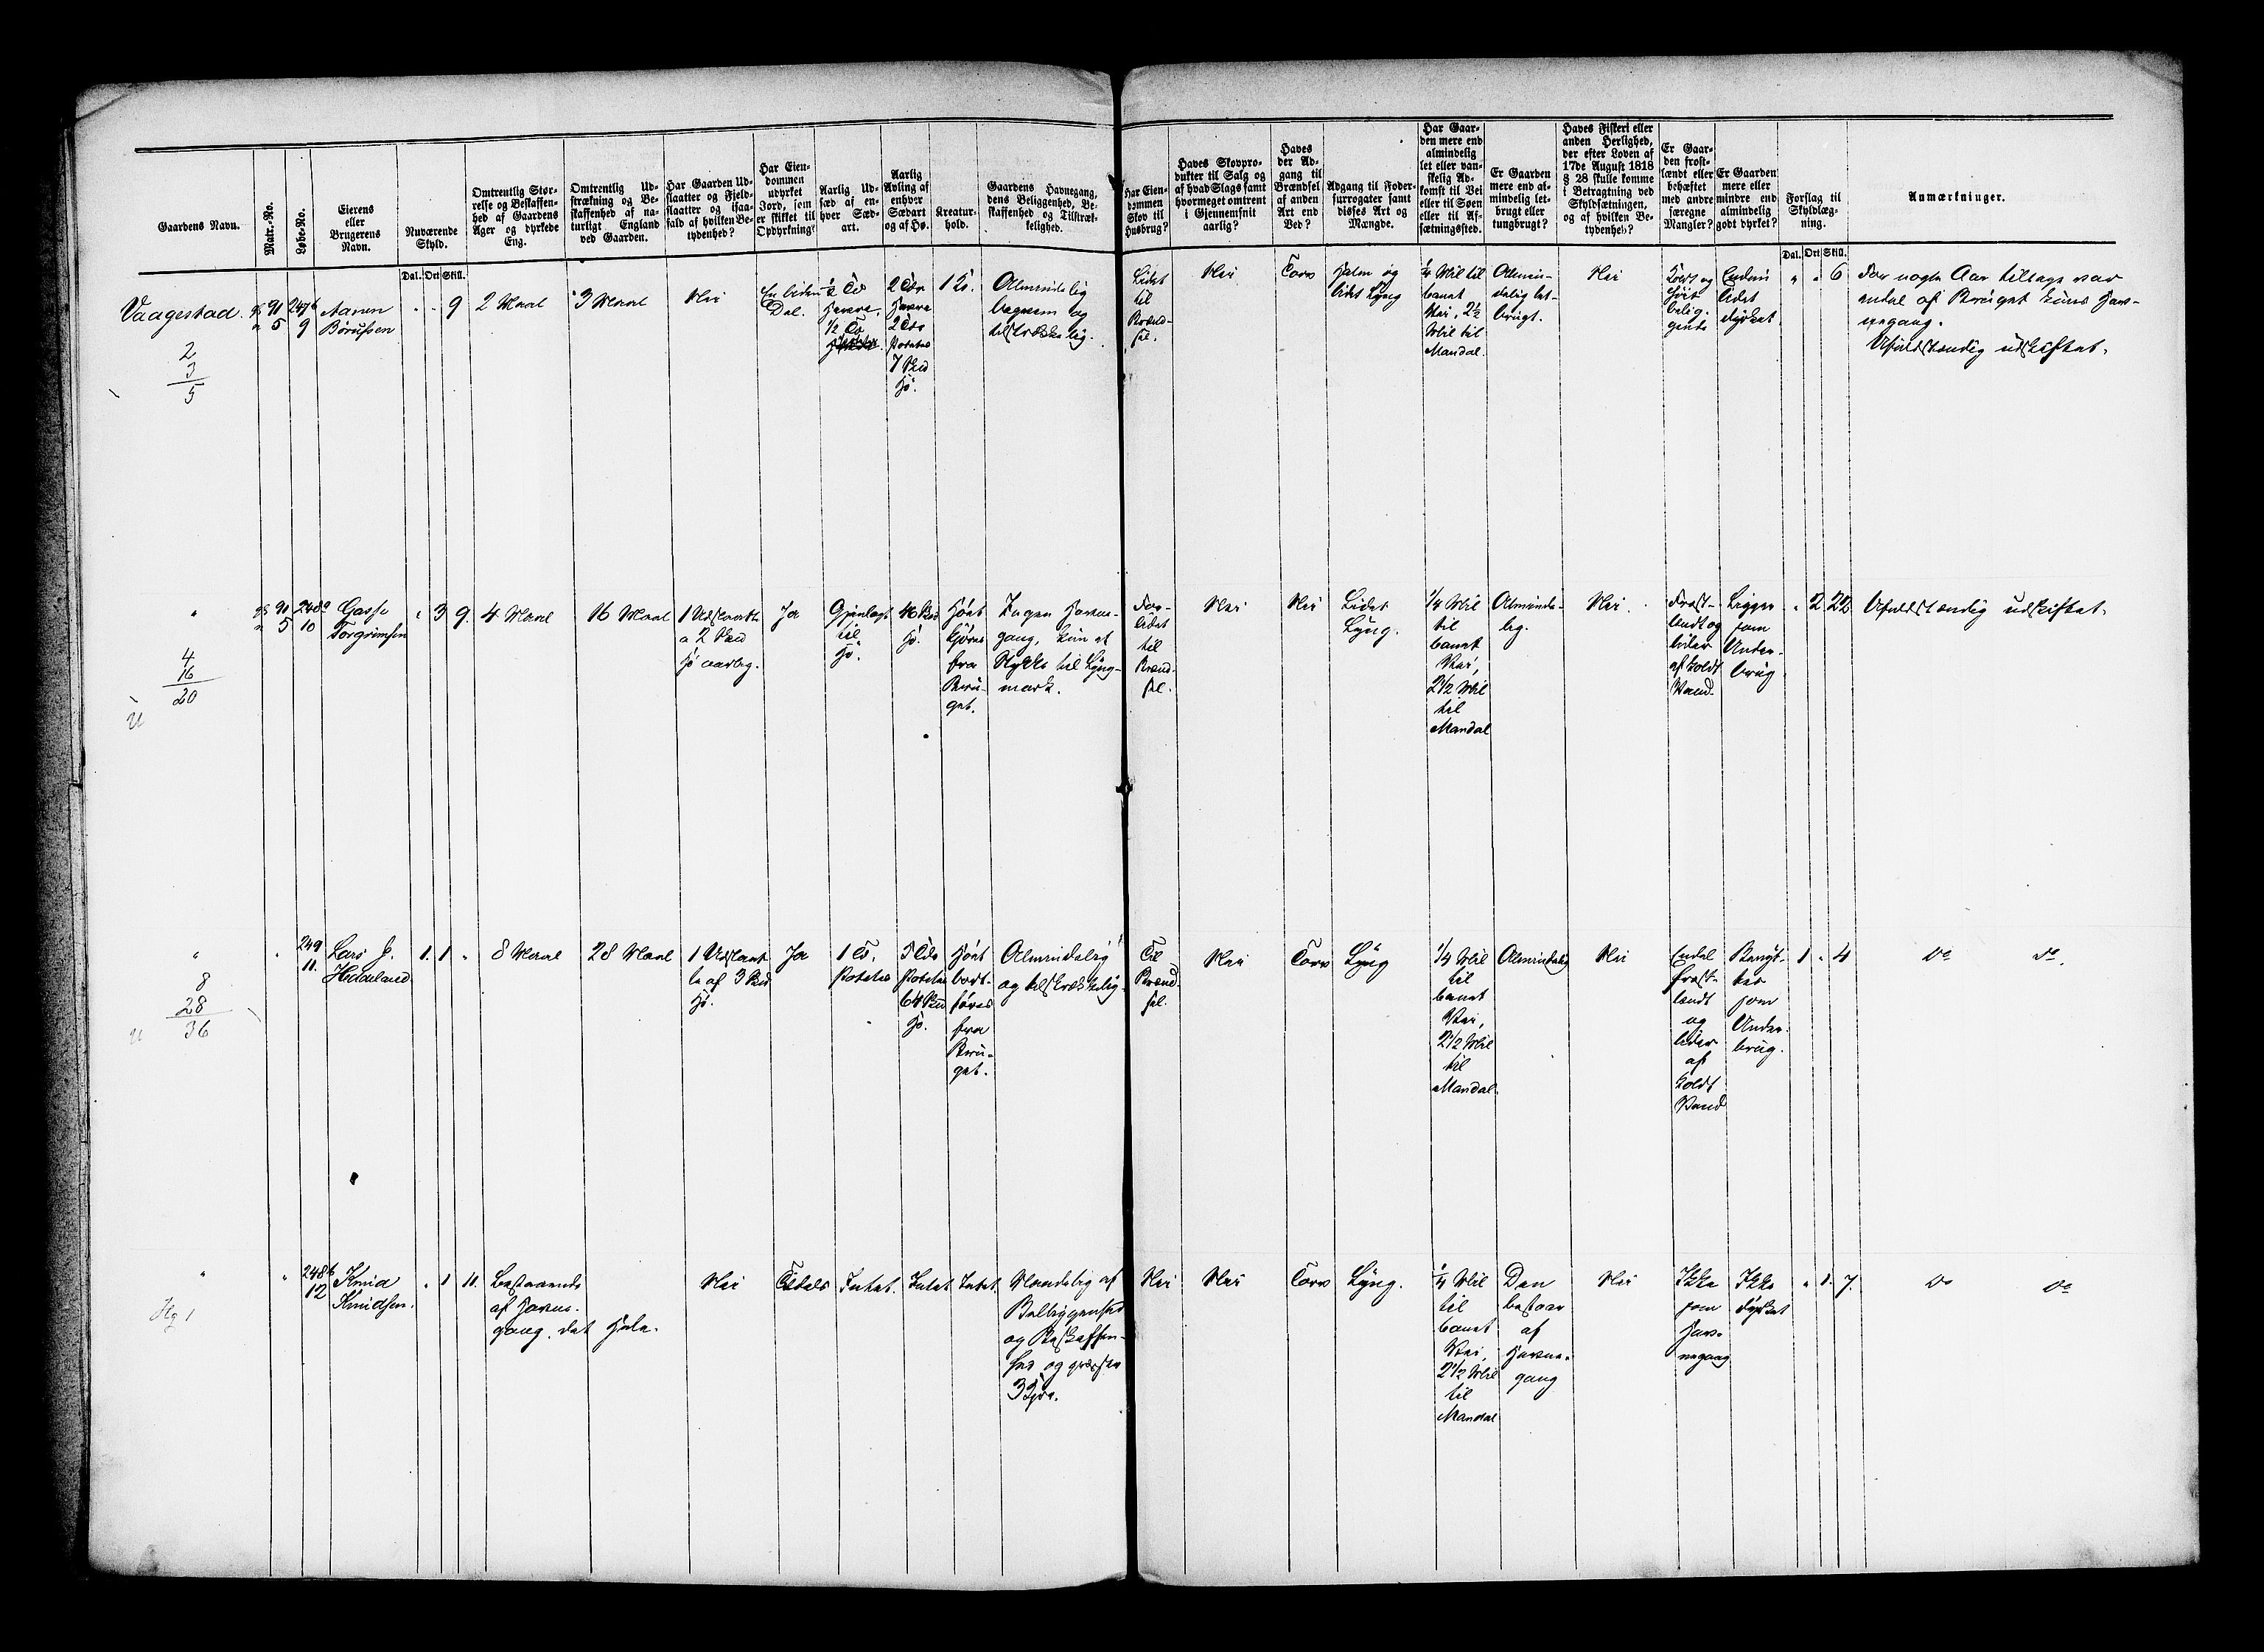 Gaardens Navn.
Matr.-No.
Løbe-No.
Eierens
eller
Brugerens
Navn.
Nuværende
Skyld.
Omtrentlig Stør-
relse og Beskaffen-
hed af Gaardens
Ager og dyrkede
Eng.
Omtrentlig Ud-
strækning og Be-
skaffenhed af na-
turligt England
ved Gaarden.
Har Gaarden Ud-
slaatter og Fjeld-
slaatter og isaa-
fald af hvilken Be-
tydenhed?
Har Eien-
dommen
udyrket
Jord, som
er skikket til
Opdyrkning?
Aarlig Ud-
sæd af en-
hver Sæd-
art.
Aarlig
Avling af
enhver
Sædart
og af Hø.
Kreatur-
hold.
Gaardens Havnegang,
dens Beliggenhed, Be-
skaffenhed og Tilstræk-
kelighed.
Har Eien-
dommen
Skov til
Husbrug?
Haves Skovpro-
dukter til Salg og
af hvad Slags samt
hvormeget omtrent
i Gjennemsnit
aarlig?
Haves
der Ad-
gang til
Brændsel
af anden
Art end
Ved?
Adgang til Foder-
surrogater samt
disses Art og
Mængde.
Har Gaar-
den mere end
almindelig
let eller van-
skelig Ad-
komst til Vei
eller til Søen
eller til Af-
sætningssted.
Er Gaarden
mere end al-
mindelig let-
brugt eller
tungbrugt?
Haves Fiskeri eller
anden Herlighed,
der efter Loven af
17de August 1818
§ 28 skulle komme
i Betragtning ved
Skyldsætningen,
og af hvilken Be-
tydenhed?
Er Gaar-
den frost-
lændt eller
behæftet
med andre
særegne
Mangler?
Er Gaarden
mere eller
mindre end
almindelig
godt dyrket?
Forslag til
Skyldlæg-
ning.
Anmærkninger.
Dal. Ort Skill.
Dal. Ort Skill.
Vaagestad.
90
5
247b
9
Aanen
Børufsen
" " 9
2 Maal
3 Maal
Nei
En liden
Del.
1/2 Td
Havre.
1/2 Td
2 Tdr
Havre
2 Tdr
Potetes
7 Skd
Hø.
1 Ko.
Almindelig
beqvem og
tilstrækkelig.
Lidet
til
Brænd-
sel.
Nei
Torv
Halm og
lidet Lyng
1/4 Mil til
banet
Vei, 2 1/2
Mil til
Mandal.
Almin-
delig let-
brugt.
Nei
Endnu
lidet
dyrket
" " 6
For nogle Aar tilbage var
endel af Bruget kuns Hav-
negang.
Ufuldstændig udskiftet.
2
3
5
"
90
5
248a
10
Gasse
Torgrimsen
" 3 9.
4 Maal
16 Maal
1 Udslaatte
a 2 Skd
Hø aarlig.
Ja
Gjenlagt
til
Hø.
Hø.
Høet
kjøres
fra
Bru-
get.
Ingen Havne-
gang, kun et
Stykke til Lyng-
mark.
For-
lidet
til
Brænd-
sel.
Nei
Nei
Lidet
Lyng.
1/4 Mil
til
banet
Vei,
2 1/2 Mil
til
Mandal
Alminde-
lig.
Nei.
Frost-
lændt og
lider
af koldt
Vand.
Ligger
som
Under-
brug
" 2 22
Ufuldstændig udskiftet.
4
16
20
U
"
"
249
11.
Lars J.
Hedaland.
1. 1 "
8 Maal
28 Maal
1 Udslaat-
te af 3 Skd
Hø.
Ja
1 Td.
Potetes
5 Tdr
Potetes
64 Skd
Hø.
Høet
bort-
føres
fra
Bru-
get.
Almindelig
og tilstrækkelig.
Til
Brænd-
sel.
Nei
Torv
Lyng
1/4 Mil
til
banet
Vei,
2 1/2 Mil
til
Mandal.
Almindelig
Nei
Endel
frost-
lændt
og
lider
af
koldt
Vand
Benyt-
tes
som
Under-
brug.
1 " 4
Do Do.
8
28
36
U
"
"
248b
12
Knud
Knudsen.
" 1 11.
Bestaaende
af Havne-
gang. det Hele.
Nei
Tildels
Intet.
Intet
Intet.
Maadelig af
Beliggenhed
og Beskaffen-
hed og græsser
3 Kjør.
Nei
Nei
Torv
Lyng.
1/4 Mil
til
banet
Vei,
2 1/2 Mil
til
Mandal
Den
bestaar
af
Havne-
gang
Nei
Ikke
som
Hav-
negang
Ikke
dyrket
" 1. 7.
Do Do
Hg 1